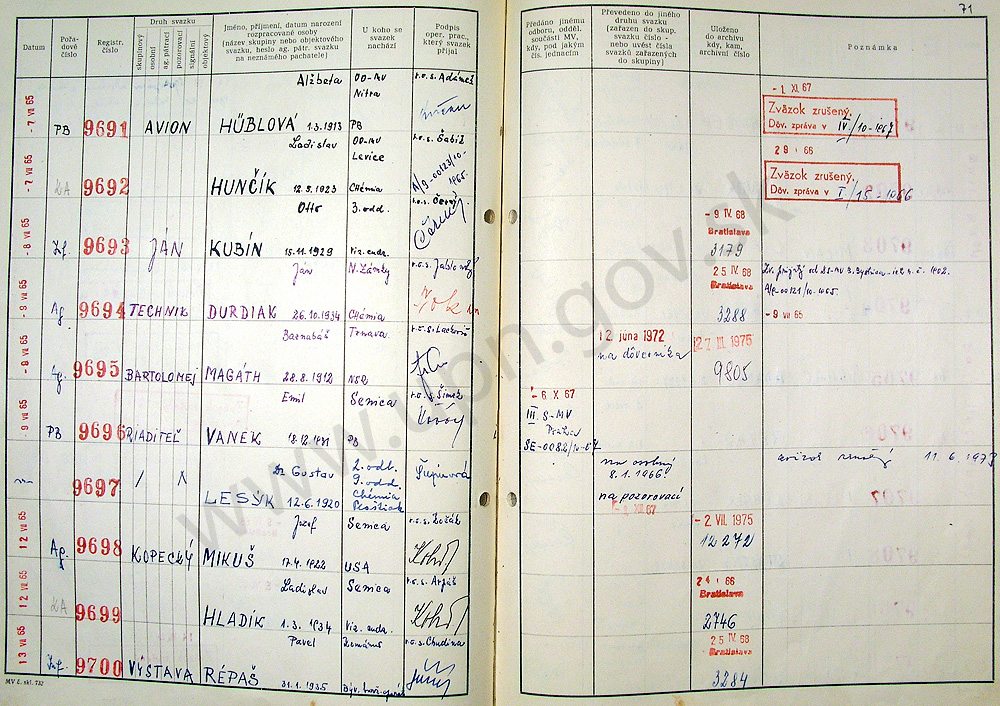 71
Datum
Pořa-
dové
číslo
Registr.
číslo
Druh svazku
skupinový
osobní
ag. pátrací
pozorovací
signální
objektový
Jméno, příjmení, datum narození
rozpracované osoby
(název skupiny nebo objektového
svazku, heslo ag. pátr. svazku
na neznámého pachatele)
U koho se
svazek
nachází
Podpis
oper. prac.,
který svazek
přijal
Předáno jinému
odboru, odděl.
součásti MV,
kdy, pod jakým
čís. jednacím
Převedeno do jiného
druhu svazku
(zařazen do skup.
svazku číslo -
nebo uvést čísla
svazků zařazených
do skupiny)
Uloženo
do archivu
kdy, kam,
archivní číslo
Poznámka
-7 VII 65
PB
9691
AVION
Alžbeta
HÜBLOVÁ 1.3.1913
OO-MV
Nitra
PB
r.o.s. Adámek
-1 XI. 67
Zväzok zrušený.
Dôv. zpráva v IV/10-1967
-7 VII 65
ZA
9692
Ladislav
HUNČÍK 12.9.1923
OO-MV
Levice
Chémia
r.o.s. Gabiž
A/9-00123/10-
1965.
29 66
Zväzok zrušený.
Dôv. zpráva v I/15-1966
-8 VII 65
Inf.
9693
JÁN
Otto
KUBÍN 15.11.1929
3. odd.
Viz. endr.
-9 IV. 68
Bratislava
3179
-9 VII 65
Ag.
9694
TECHNIK
Ján
DURDIAK 26.10.1934
N. Zámky
Chémia
25 IV. 68
Bratislava
3288
A/9-00121/10-1965.
-9 VII 65
-9 VII 65
Ag.
9695
BARTOLOMEJ
Barnabáš
MAGÁTH 28.8.1912
Trnava
NSR
r.o.s. Lackovič
12. júna 1972
na dôverníka
27 III. 1975
9805
-9 VII 65
PB
9696
RIADITEĽ
Emil
VANEK
Senica
PB
r.o.s. Šimek
-6 X 67
III. S-MV
Praha
SE-0082/10-67
9697
/
Dr Gustav
LESÝK 12.6.1920
2. odb.
9. odd.
Chémia
na osobný
8.1.1966.
na pozorovací
XII. 67
11.6.1973
12 VII 65
Ag.
9698
KOPECKÝ
Jozef
MIKUŠ 17.4.1922
Senica
USA
-2 VII. 1975
12272
12 VII 65
ZA
9699
Ladislav
HLADÍK 1.3.1934
Senica
Viz. endr.
r.o.s. Arpáš
24 66
Bratislava
2746
13 VII 65
Inf.
9700
VÝSTAVA
Pavel
RÉPAŠ 31.1.1935
Komárno
r.o.s. Chudina
25 IV. 68
Bratislava
3284
MV č. skl. 732
www.upn.gov.sk